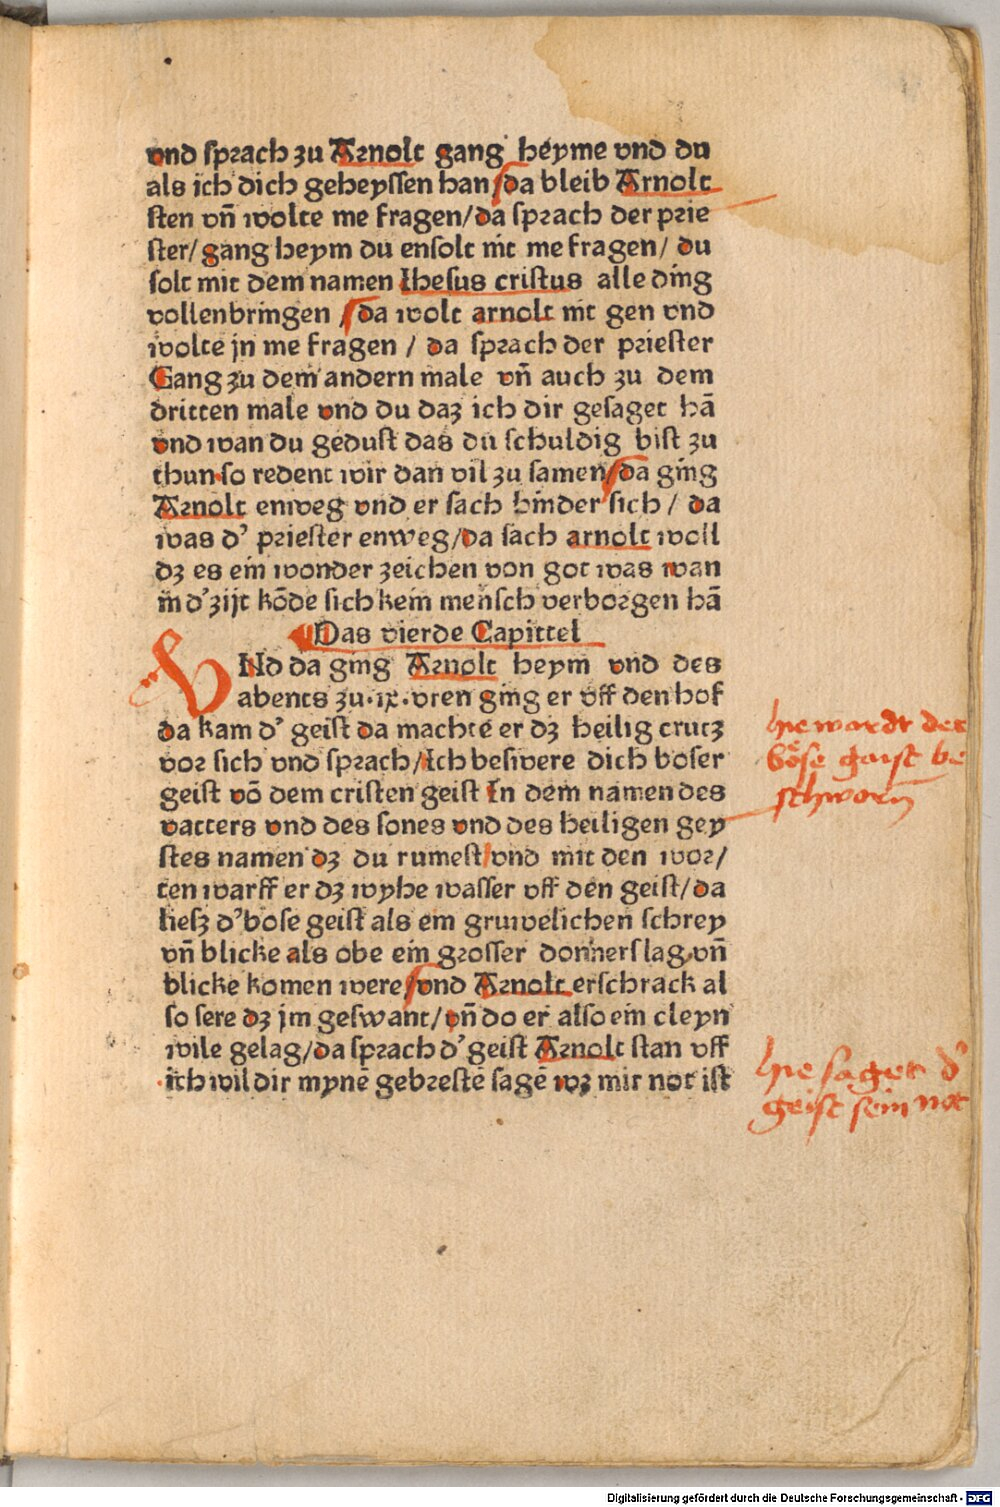 vnd sprach zu Arnolt gang heyme vnd du
als ich dich geheyssen han da bleib Arnolt
sten vñ wolte me fragen/da sprach der prie
ster/gang heym du ensolt nit me fragen/ du
solt mit dem namen Ihesus cristus alle ding
vollenbringen da wolt arnolt nit gen vnd
wolte jn me fragen / da sprach der priester
Gang zu dem andern male vñ auch zu dem
dritten male vnd du daz ich dir gesaget hã
vnd wan du gedust das du schuldig bist zu
thun·so redent wir dan vil zu samen da ging
Arnolt enweg vnd er sach hinder sich / da
was d' priester enweg/da sach arnolt woll
dz es ein wonder zeichen von got was wan
in d'zijt kõde sich kein mensch verborgen hã
Das vierde Capittel
VNd da ging Arnolt heym vnd des
abents zu·ix·vren ging er vff den hof
da kam d' geist da machte er dz heilig crutz
vor sich vnd sprach/Ich beswere dich boser
geist võ dem cristen geist In dem namen des
vatters vnd des sones vnd des heiligen gey
stes namen dz du rumest/vnd mit den wor/
ten warff er dz wyhe wasser vff den geist/da
liesz d'bose geist als ein gruwelichen schrey
vñ blicke als obe ein grosser donnerslag vñ
blicke komen were vnd Arnolt erschrack al
so sere dz jm geswant/vñ do er also ein cleyn
wile gelag/da sprach d' geist Arnolt stan vff
ich wil dir mynẽ gebrestẽ sagẽ wz mir not ist
hie wardt der
böse gaist be
schworn
hie saget d'
geist sein not
Digitalisierung gefördert durch die Deutsche Forschungsgemeinschaft - DFG